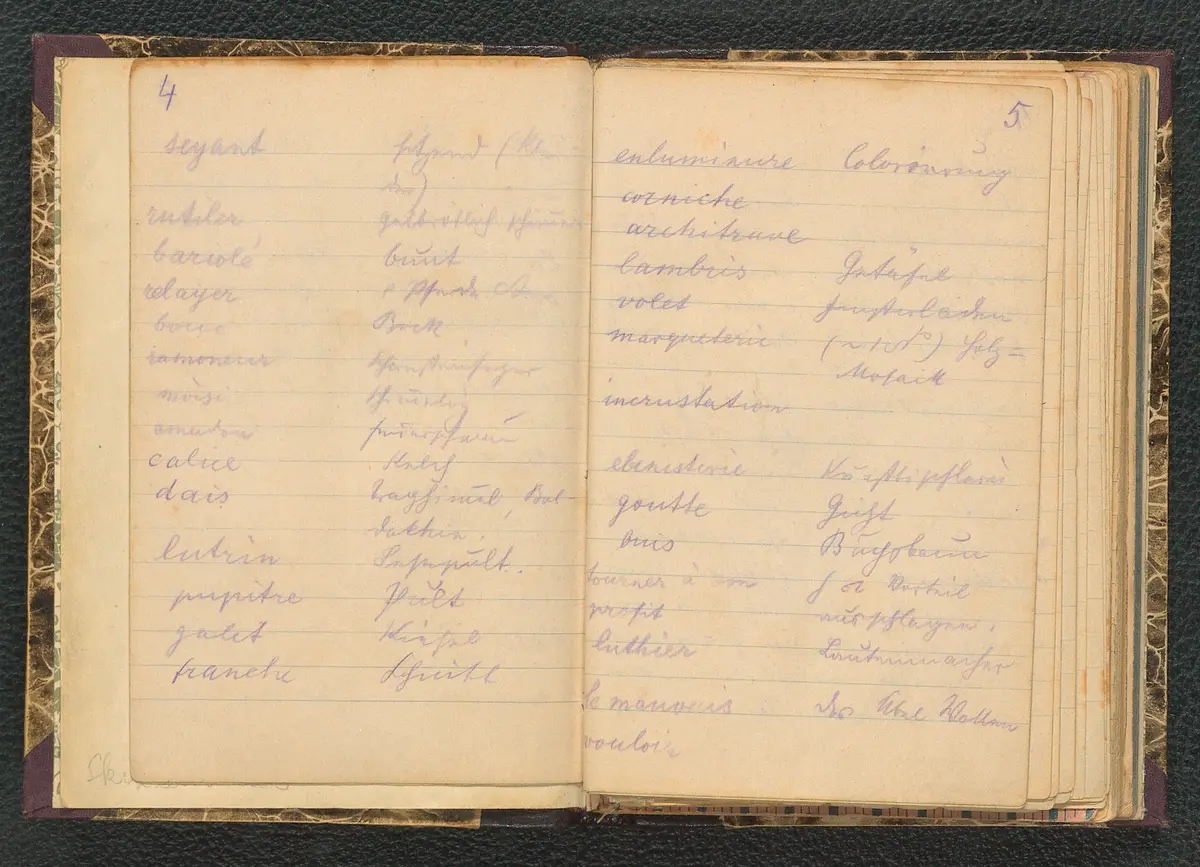 4
seyant sitzend
rutiler gelbrötlich
bariolé bunt
relayer Pferde
bouc Bock
ramoneur Schornsteinfeger
moisi
amadou Feuerschwamm
calice Kelch
dais Traghimmel, Bal-
dachin.
lutrin Lesepult.
pupitre Pult
galet Kiesel
tranche Schnitt
5
enluminure Colorierung
corniche
architrave
lambris Getäfel
volet Fensterladen
marqueterie Holz=
Mosaik
incrustation
ebenisterie Kunsttischlerei
goutte Gicht
buis Buchsbaum
tourner à son Vorteil
profit ausschlagen.
luthier Lautenmacher
le mauvais das übel Wollen
vouloir